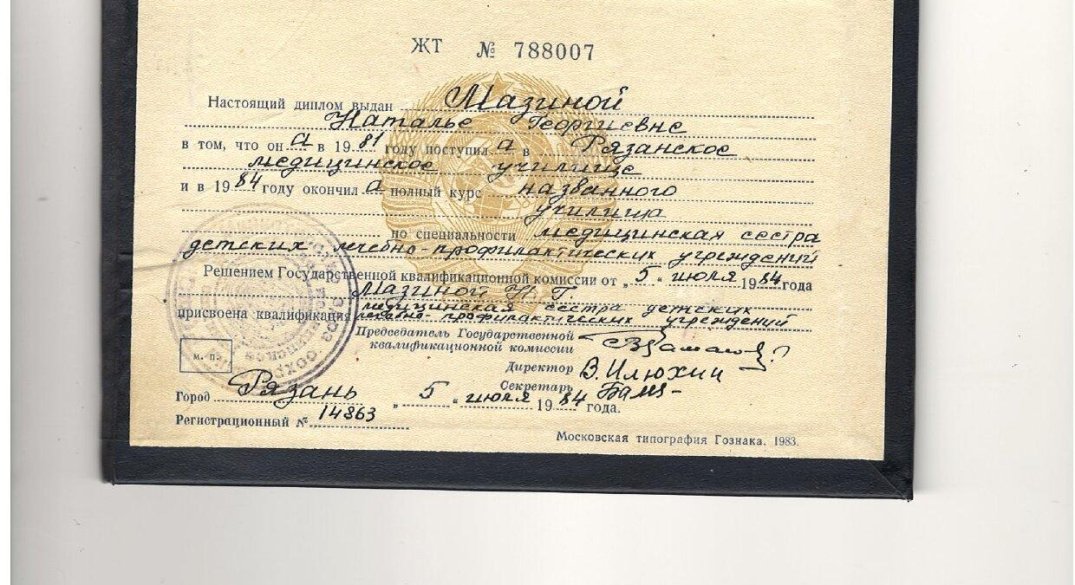 ЖТ № 788007
Настоящий диплом выдан Мазиной
Наталье Георгиевне
в том, что он а в 19 81 году поступил а в Рязанское
медицинское училище
и в 19 84 году окончил а полный курс названного
училища
по специальности медицинская сестра
детских лечебно-профилактических учреждений
Решением Государственной квалификационной комиссии от „ 5 " июля 19 84 года
Мазиной Н. Г.
присвоена квалификация медицинская сестра детских
лечебно-профилактических учреждений
Председатель Государственной
квалификационной комиссии
Директор В. Илюхин
Секретарь
М. П.
Город Рязань „ 5 " июля 19 84 года.
Регистрационный № 14863
Московская типография Гознака. 1983.